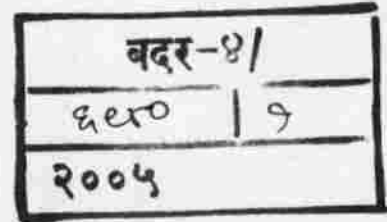 बदर-४/
६९० | १
२००५